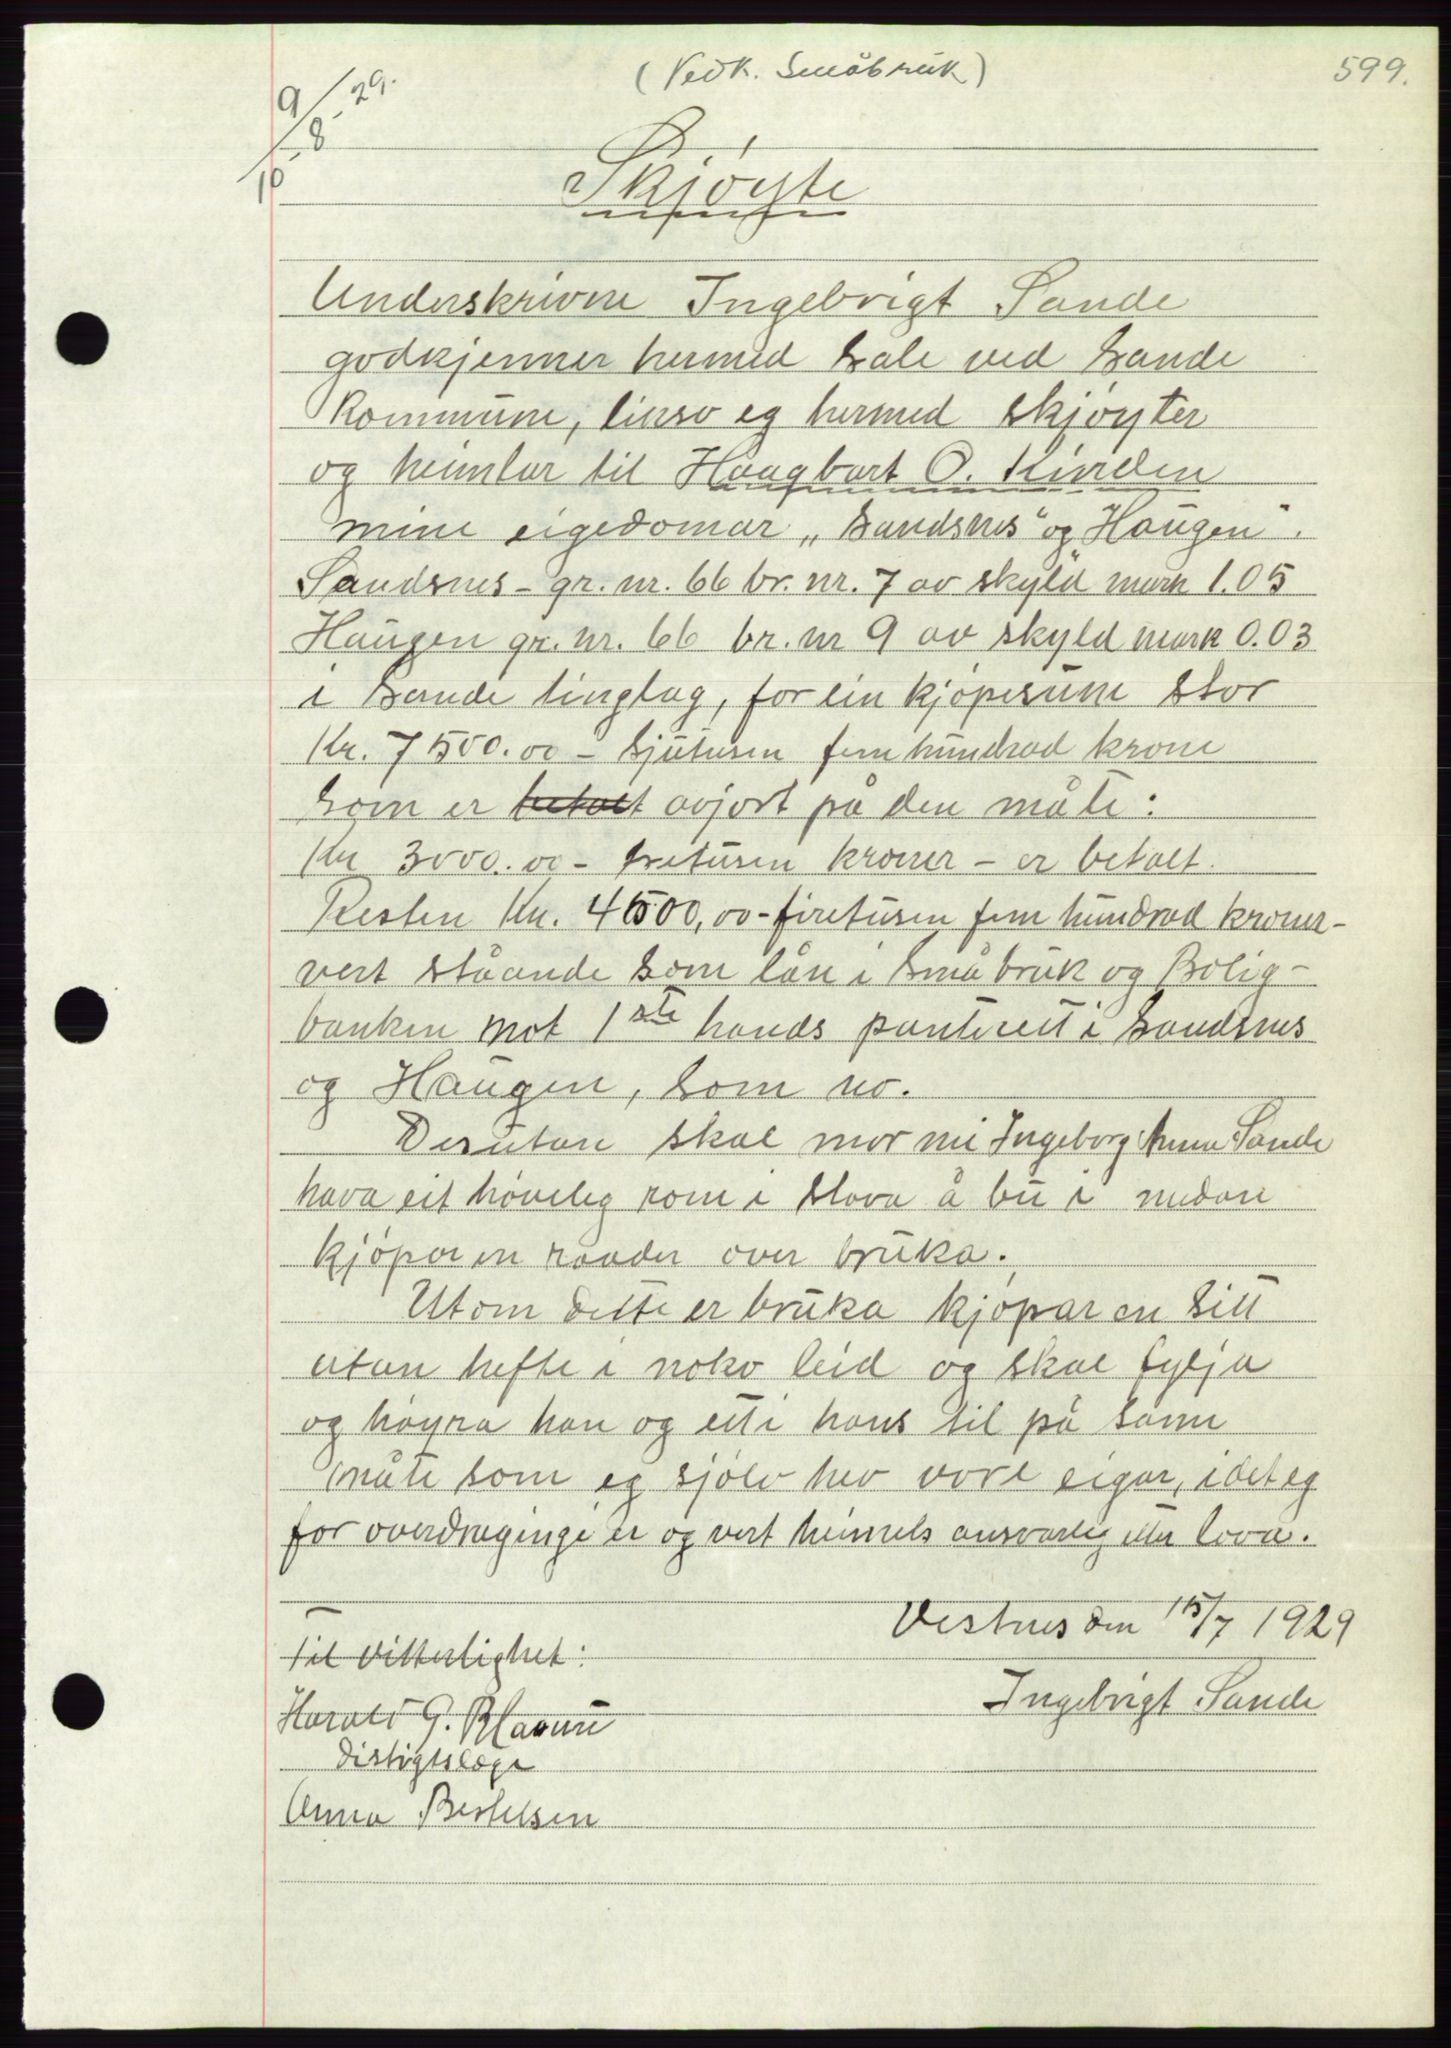 (Vedk. Småbruk)
599.
9/10-8-29.
Skjøyte
Underskrivne Ingebrigt Sande
godkjenner hermed sale ved Sande
kommune, likso eg hermed skjøyter
og heimlar til Haagbart O. Kinden
mine eigedomar „Sandsnes" og „Haugen".
Sandsnes - gr. nr. 66 br. nr. 7 av skyld mark 1.05
Haugen gr. nr. 66 br. nr 9 av skyld mark 0.03
i Sande tinglag, for ein kjøpesum stor
Kr. 7500.00 - sjutusen fem hundrad krone
som er betalt avjort på den måte:
Kr 3000.00 - tretusen kroner - er betalt.
Resten Kr. 4500,00 - firetusen fem hundrad kroner -
vert ståande som lån i Småbruk og Bolig-
banken mot 1ste hands panterett i Sandsnes
og Haugen, som no.
Desutan skal mor mi Ingeborg Anna Sande
hava eit høveleg rom i stova å bu i medan
kjøparen raader over bruka.
Utom dette er bruka kjøparen sitt
utan hefte i noko leid og skal fylja
og høyra han og etti hans til på same
måte som eg sjølv hev vore eigar, idet eg
for overdraginge er og vert heimels ansvarleg etter lova.
Vestnes den 15/7 1929
Til vitterlighet:
Ingebrigt Sande
Harald G.
Distrigtslæge
Anna Bertelsen